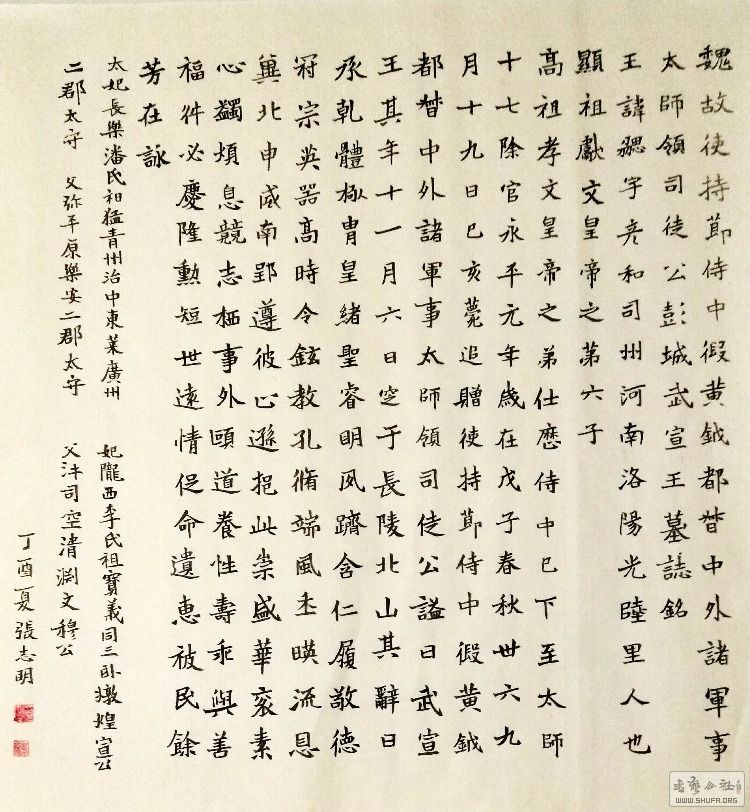 魏故使持節侍中假黃鉞都督中外諸軍事
太師領司徒公彭城武宣王墓誌銘
王諱勰字彥和司州河南洛陽光睦里人也
顯祖獻文皇帝之第六子
高祖孝文皇帝之弟仕歷侍中已下至太師
十七除官永平元年歲在戊子春秋卅六九
月十九日己亥薨追贈使持節侍中假黃鉞
都督中外諸軍事太師領司徒公諡曰武宣
王其年十一月六日窆于長陵北山其辭曰
承乾體極胄皇緒聖睿明夙躋含仁履敬德
冠宗英器高時令鉉教孔脩端風丕暎流恩
冀北申威南郢遵彼止遜挹此崇盛華裒素
心蠲煩息競志栖事外頤道養性壽乖與善
福舛必慶隆勳短世遠情促命遺惠被民餘
芳在詠
太妃長樂潘氏祖猛青州治中東萊廣州
二郡太守 父弥平原樂安二郡太守
妃隴西李氏祖寶義同三卧墩煌宣公
父汼司空清淵文穆公
丁酉夏張志明
書藝公社
WWW.SHUFA.ORG